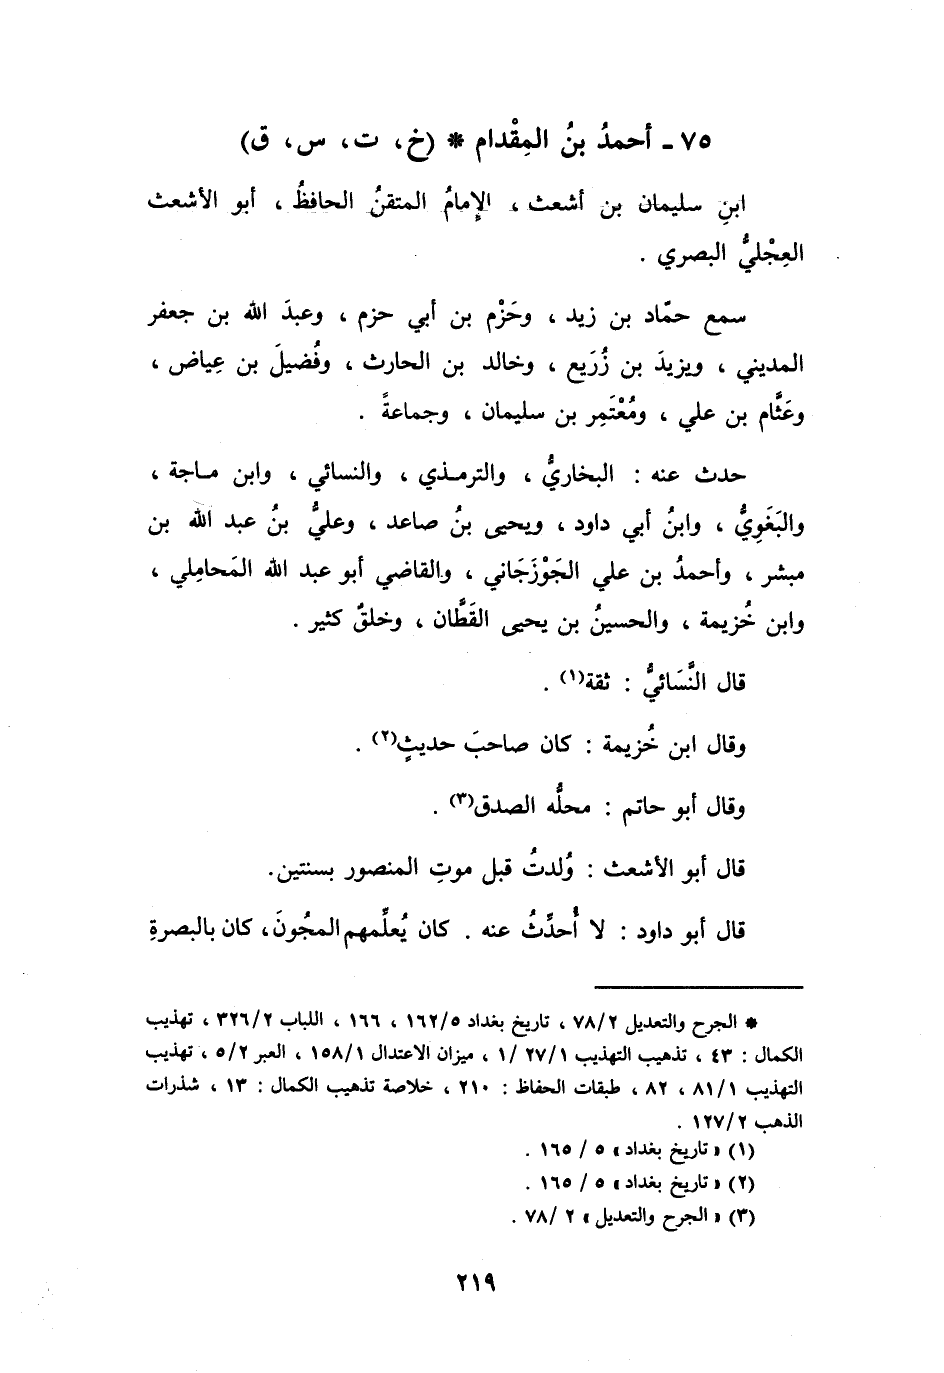 ٧٥ - أحمدُ بنُ المِقْدام * (خ، ت، س، ق)
ابنِ سليمان بن أشعث ، الإمامُ المتقنُ الحافظُ ، أبو الأشعث
العِجْليُّ البصري .
سمع حمّاد بن زيد ، وحَزْم بن أبي حزم ، وعبدَ الله بن جعفر
المديني ، ويزيدَ بن زُرَيع ، وخالد بن الحارث ، وفُضيلَ بن عِياض ،
وعَثَّام بن علي ، ومُعْتَمِر بن سليمان ، وجماعةً .
حدث عنه : البخاريُّ ، والترمـذي ، والنسائي ، وابن مـاجة ،
والبَغَوِيُّ ، وابنُ أبي داود ، ويحيى بنُ صاعد ، وعليُّ بنُ عبد الله بن
مبشر ، وأحمدُ بن علي الجَوْزَجَاني ، والقاضي أبو عبد الله المَحامِلي ،
وابن خُزيمة ، والحسينُ بن يحيى القَطَّان ، وخلقٌ كثير .
قال النَّسَائيُّ : ثقة(١) .
وقال ابن خُزيمة : كان صاحبَ حديثٍ(٢) .
وقال أبو حاتم : محلُّه الصدق(٣) .
قال أبو الأشعث : وُلدتُ قبل موتِ المنصور بسنتين.
قال أبو داود : لا أُحدِّثُ عنه . كان يُعلِّمهم المجُونَ، كان بالبصرةِ
* الجرح والتعديل ٧٨/٢ ، تاريخ بغداد ١٦٢/٥ ، ١٦٦ ، اللباب ٣٢٦/٢ ، تهذيب
الكمال : ٤٣ ، تذهيب التهذيب ٢٧/١ /١ ، ميزان الاعتدال ١٥٨/١ ، العبر ٥/٢ ، تهذيب
التهذيب ٨١/١ ، ٨٢ ، طبقات الحفاظ : ٢١٠ ، خلاصة تذهيب الكمال : ١٣ ، شذرات
الذهب ١٢٧/٢ .
(١) « تاريخ بغداد » ٥ / ١٦٥ .
(٢) « تاريخ بغداد » ٥ / ١٦٥ .
(٣) « الجرح والتعديل » ٢ /٧٨ .
٢١٩